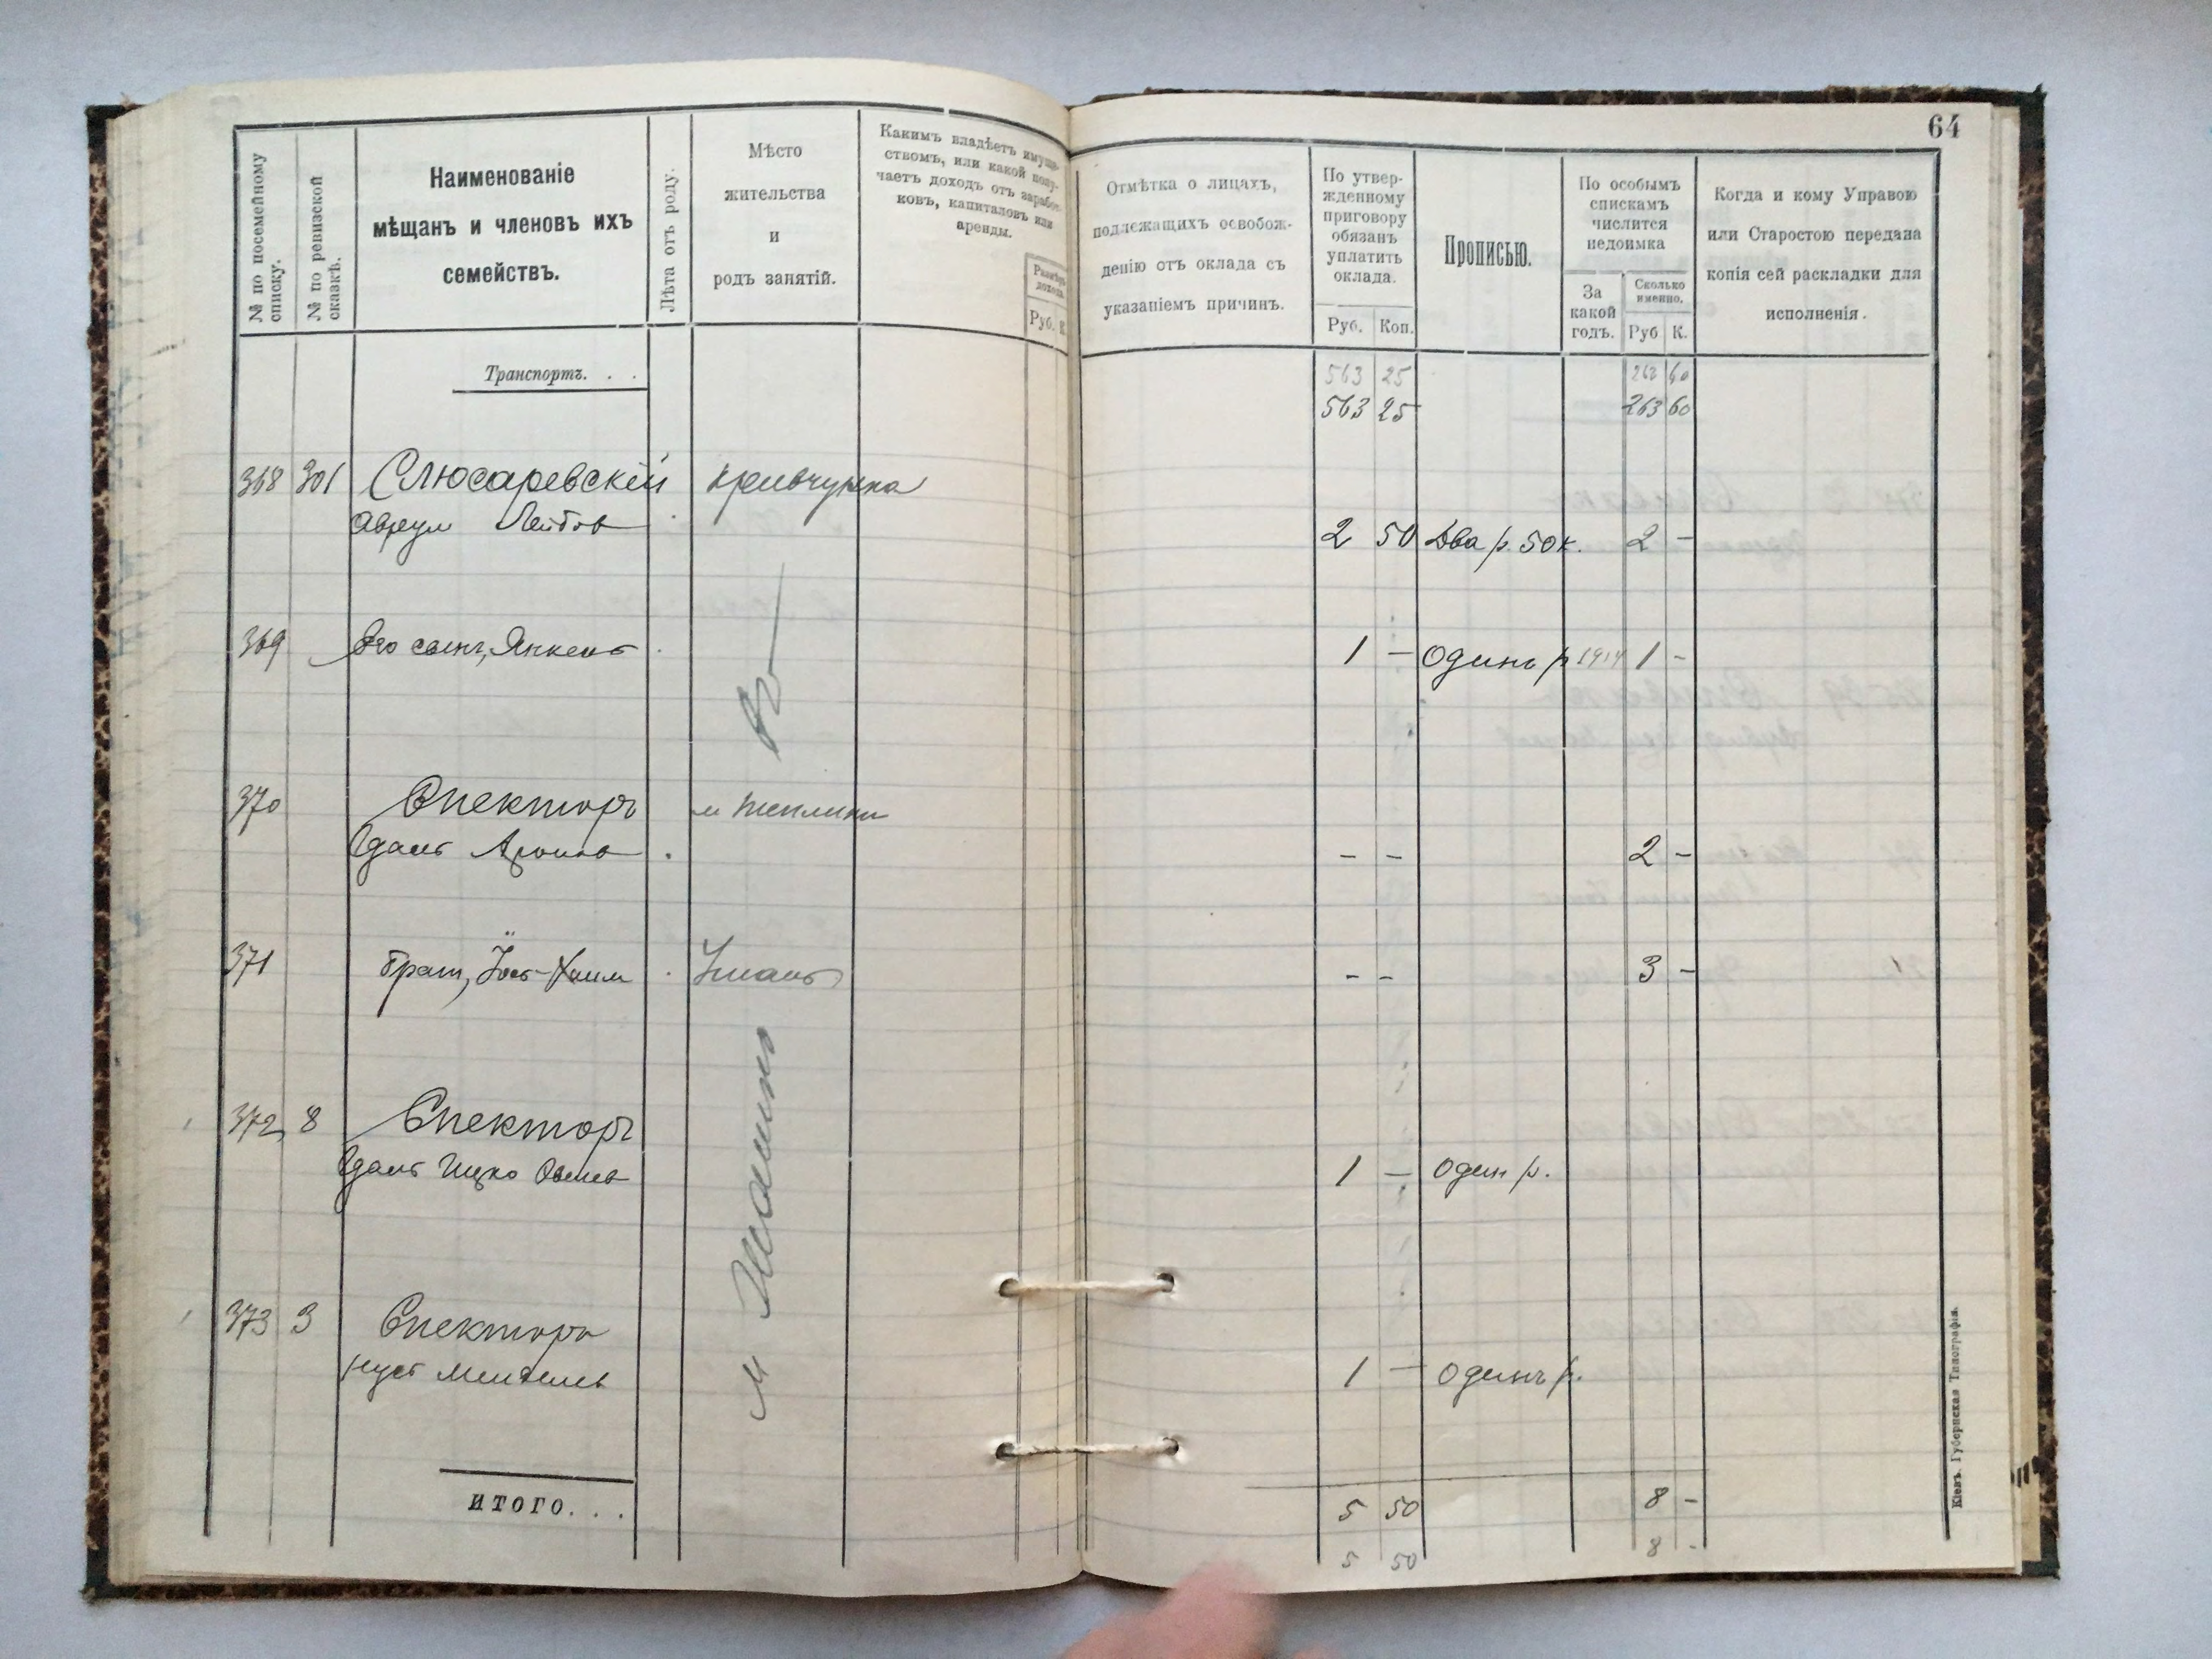 64
№ по посемейному списку.
№ по ревизской сказкѣ.
Наименованіе
мѣщанъ и членовъ ихъ
семействъ.
Лѣта отъ роду.
Мѣсто
жительства
и
родъ занятій.
Какимъ владѣетъ имуще-
ствомъ, или какой полу-
чаетъ доходъ отъ заработ-
ковъ, капиталовъ или
аренды.
Размѣръ дохода.
Руб. К.
Отмѣтка о лицахъ,
подлежащихъ освобож-
денію отъ оклада съ
указаніемъ причинъ.
По утвер-
жденному
приговору
обязанъ
уплатить
оклада.
Руб. Коп.
Прописью.
По особымъ
спискамъ
числится
недоимка
За
какой
годъ.
Сколько
именно.
Руб К.
Когда и кому Управою
или Старостою передана
копія сей раскладки для
исполненія.
Транспортъ. . .
563 25 263 60
563 25 263 60
368 301 Слюсаревскій
Аврум Лейбов 2 50 Два р. 50 к. 2 -
369 Его сынъ, Янкель 1 - Одинъ р 1914 1 -
370 Спекторъ м Теплики
- - 2 -
371 брат, Умань - - 3 -
372 8 Спекторъ
Ицко 1 - Один р.
373 3 Спекторъ
1 - Одинъ р.
ИТОГО. . .
5 50 8 -
5 50 8 -
Кіевъ. Губернская Типографія.